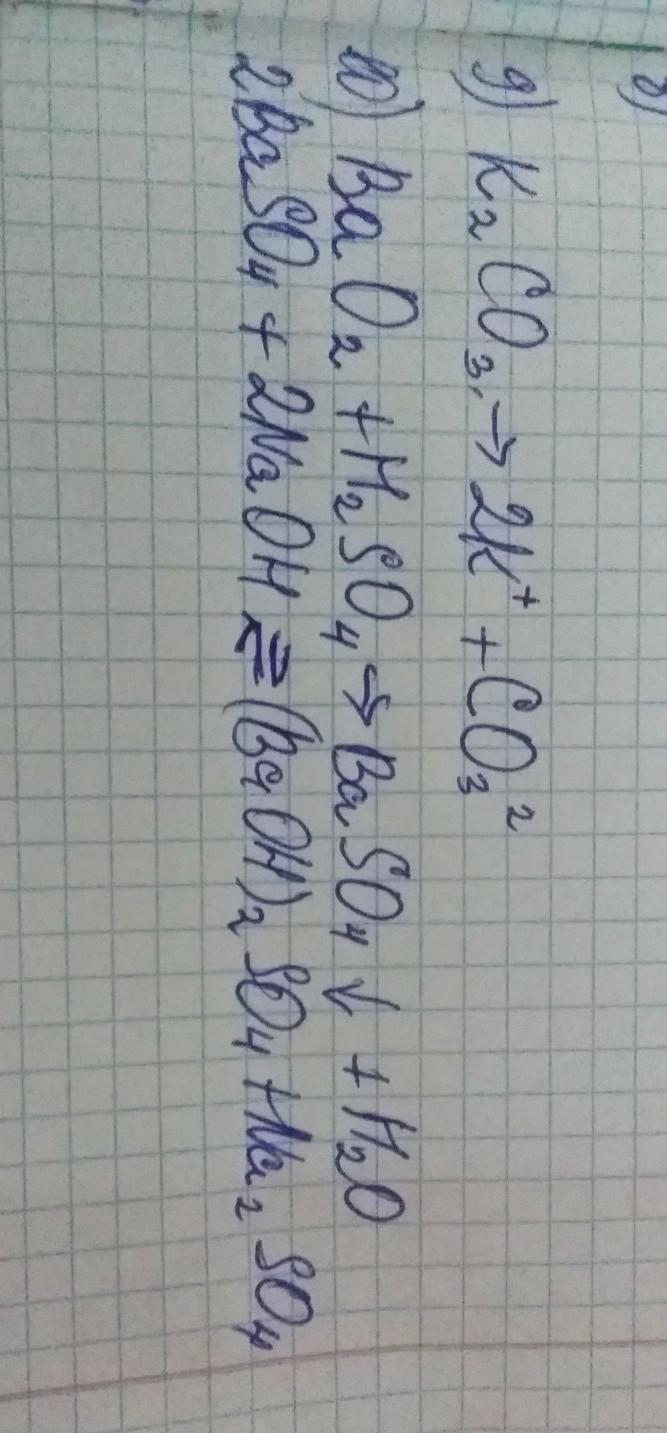 9) K₂CO₃, → 2K⁺ + CO₃²
10) BaO₂ + H₂SO₄ → BaSO₄ ↓ + H₂O
2BaSO₄ + 2NaOH ⇄ (BaOH)₂SO₄ + Na₂SO₄